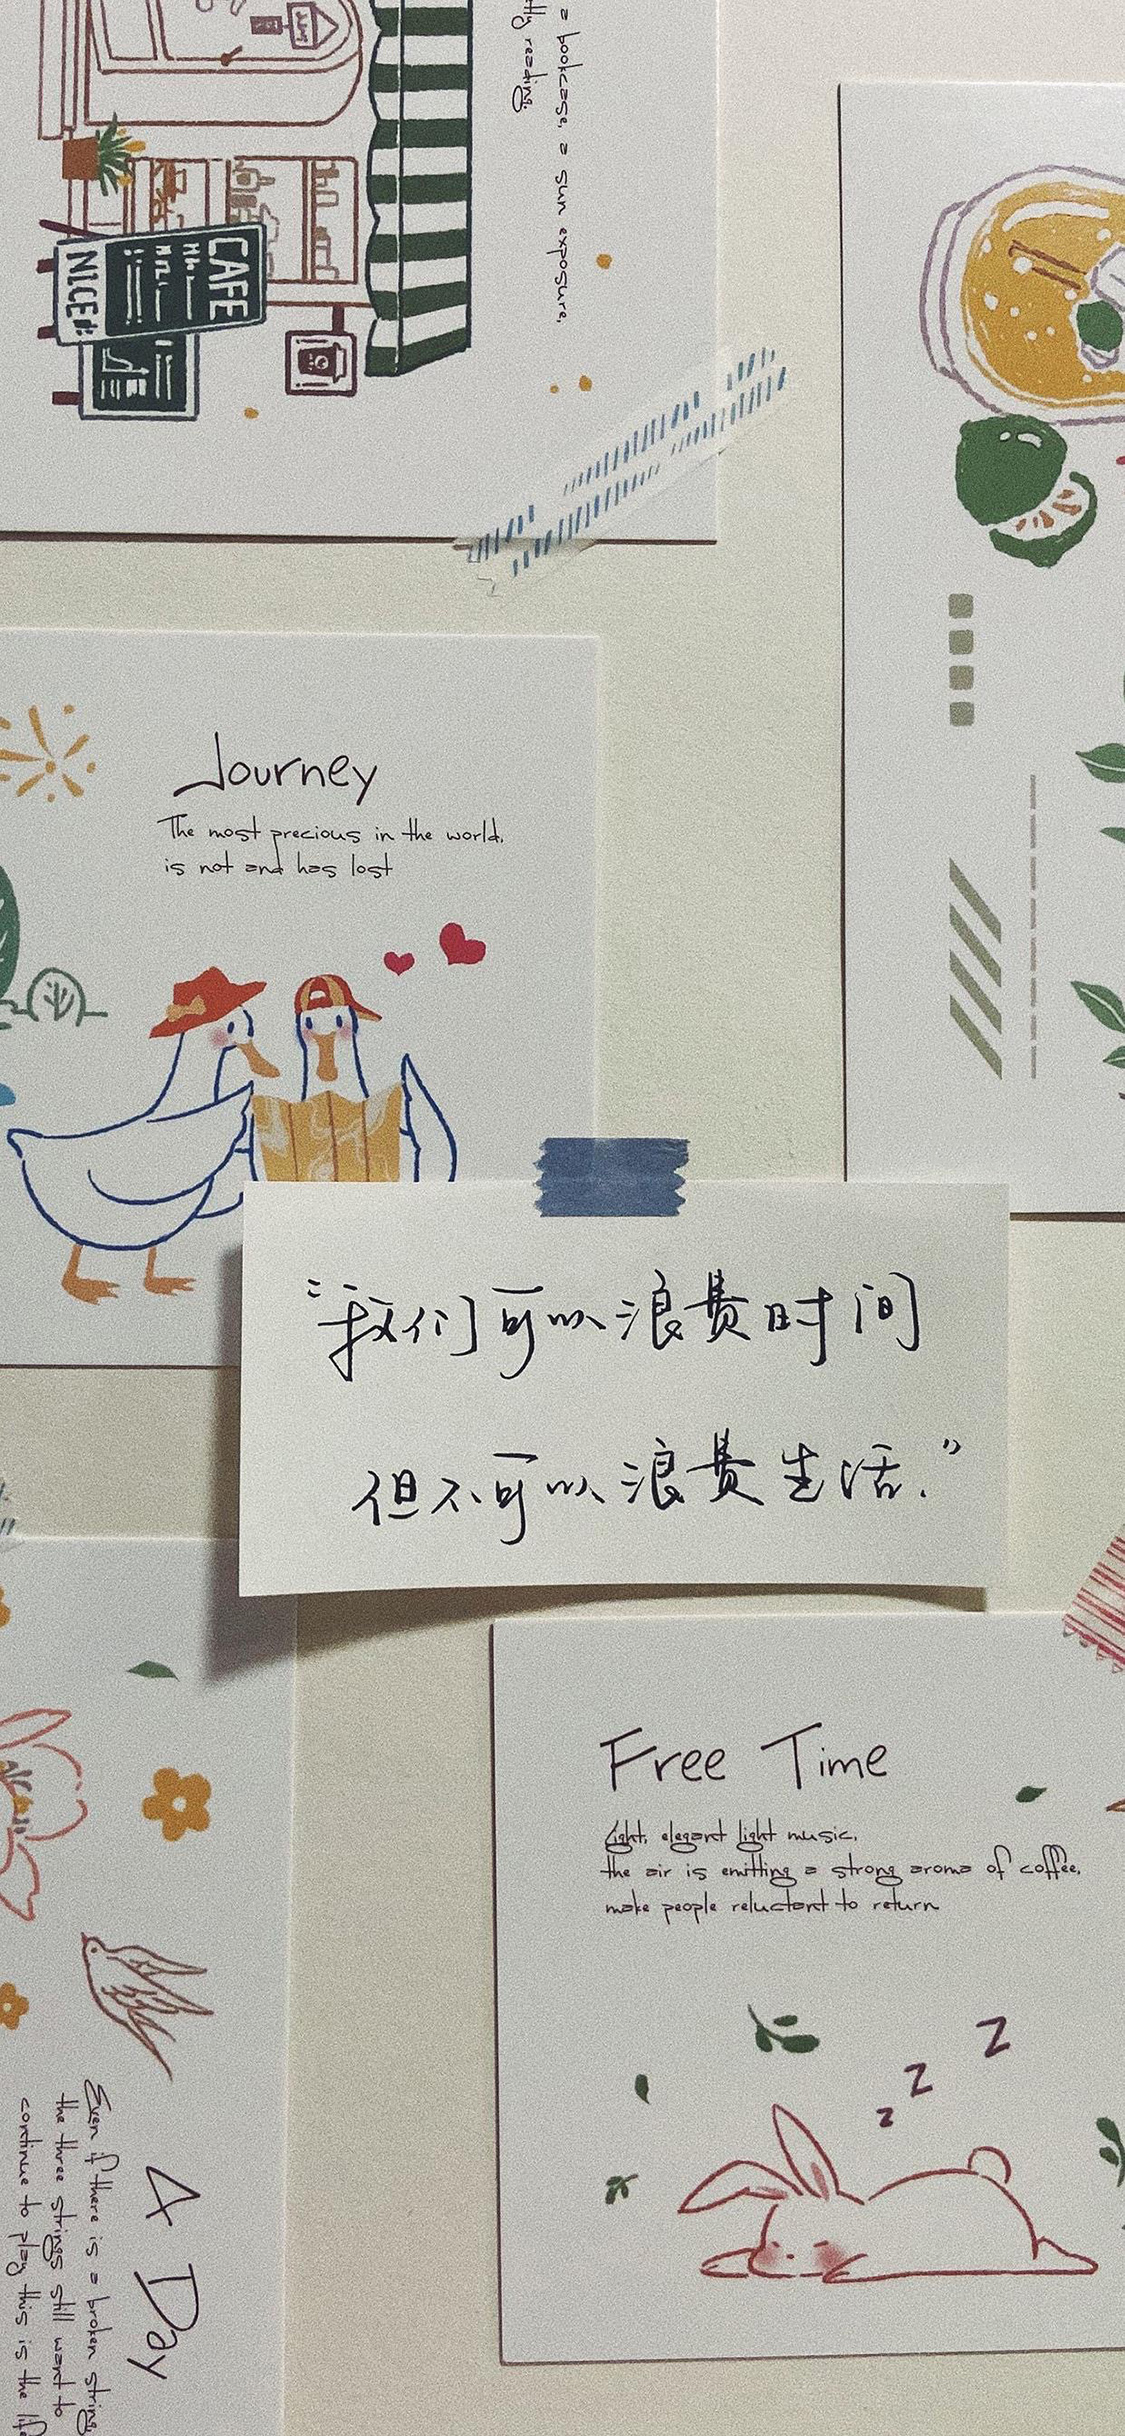 = bookcase, = sun exposure,
reading.
CAFE
NICE
Journey
The most precious in the world,
is not and has lost
“我们可以浪费时间
但不可以浪费生活.”
Free Time
Light, elegant light music,
the air is emitting a strong aroma of coffee,
make people reluctant to return
z
z
z
A Day
Even if there is a broken string,
the three strings still want to
continue to play this is the